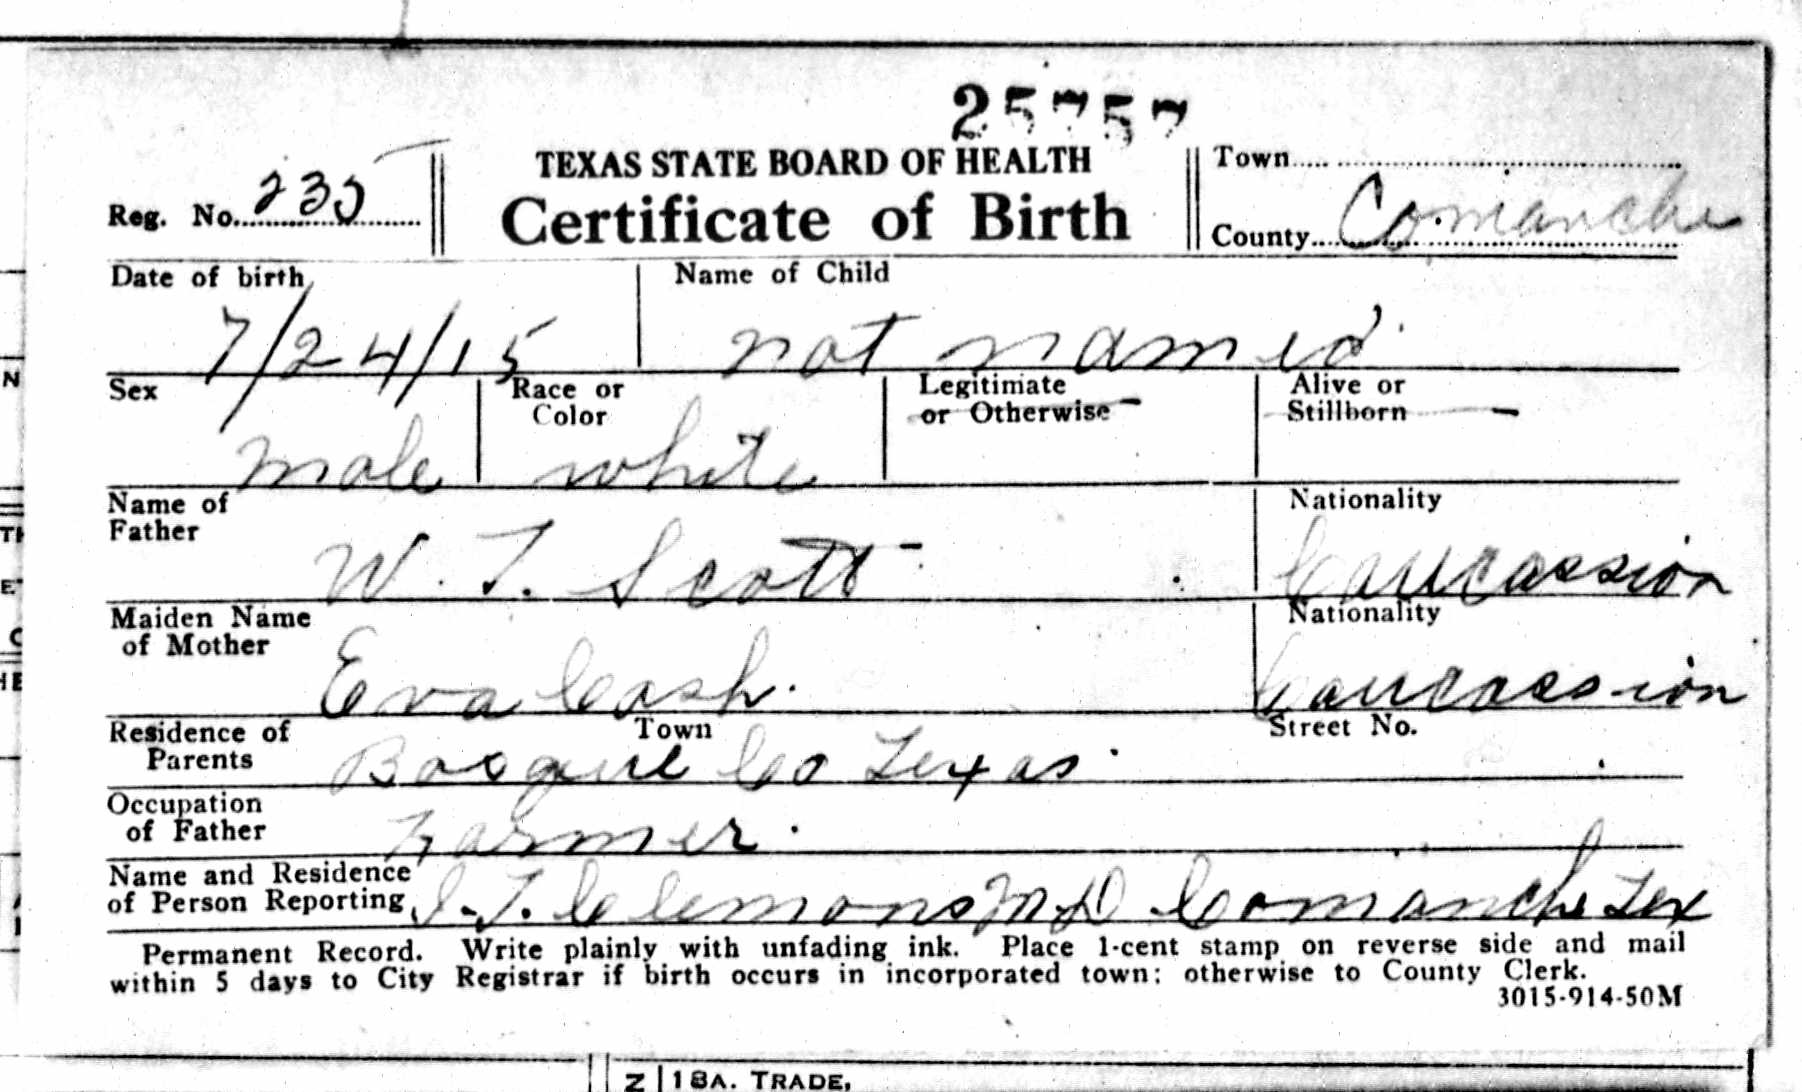 25757
TEXAS STATE BOARD OF HEALTH
Certificate of Birth
Reg. No. 235
Town
County Comanche
Date of birth
7/24/15
Name of Child
not named
Sex
male
Race or
Color
white
Legitimate
or Otherwise -
Alive or
Stillborn -
Name of
Father
W. T. Scott -
Nationality
Caucassion
Maiden Name
of Mother
Eva Cash.
Nationality
Caucassion
Residence of
Parents
Town
Bosque Co Texas
Street No.
Occupation
of Father
Farmer.
Name and Residence
of Person Reporting
Clemons M D Comanche Tex
Permanent Record. Write plainly with unfading ink. Place 1-cent stamp on reverse side and mail
within 5 days to City Registrar if birth occurs in incorporated town: otherwise to County Clerk.
3015-914-50M
Z 18A. TRADE,